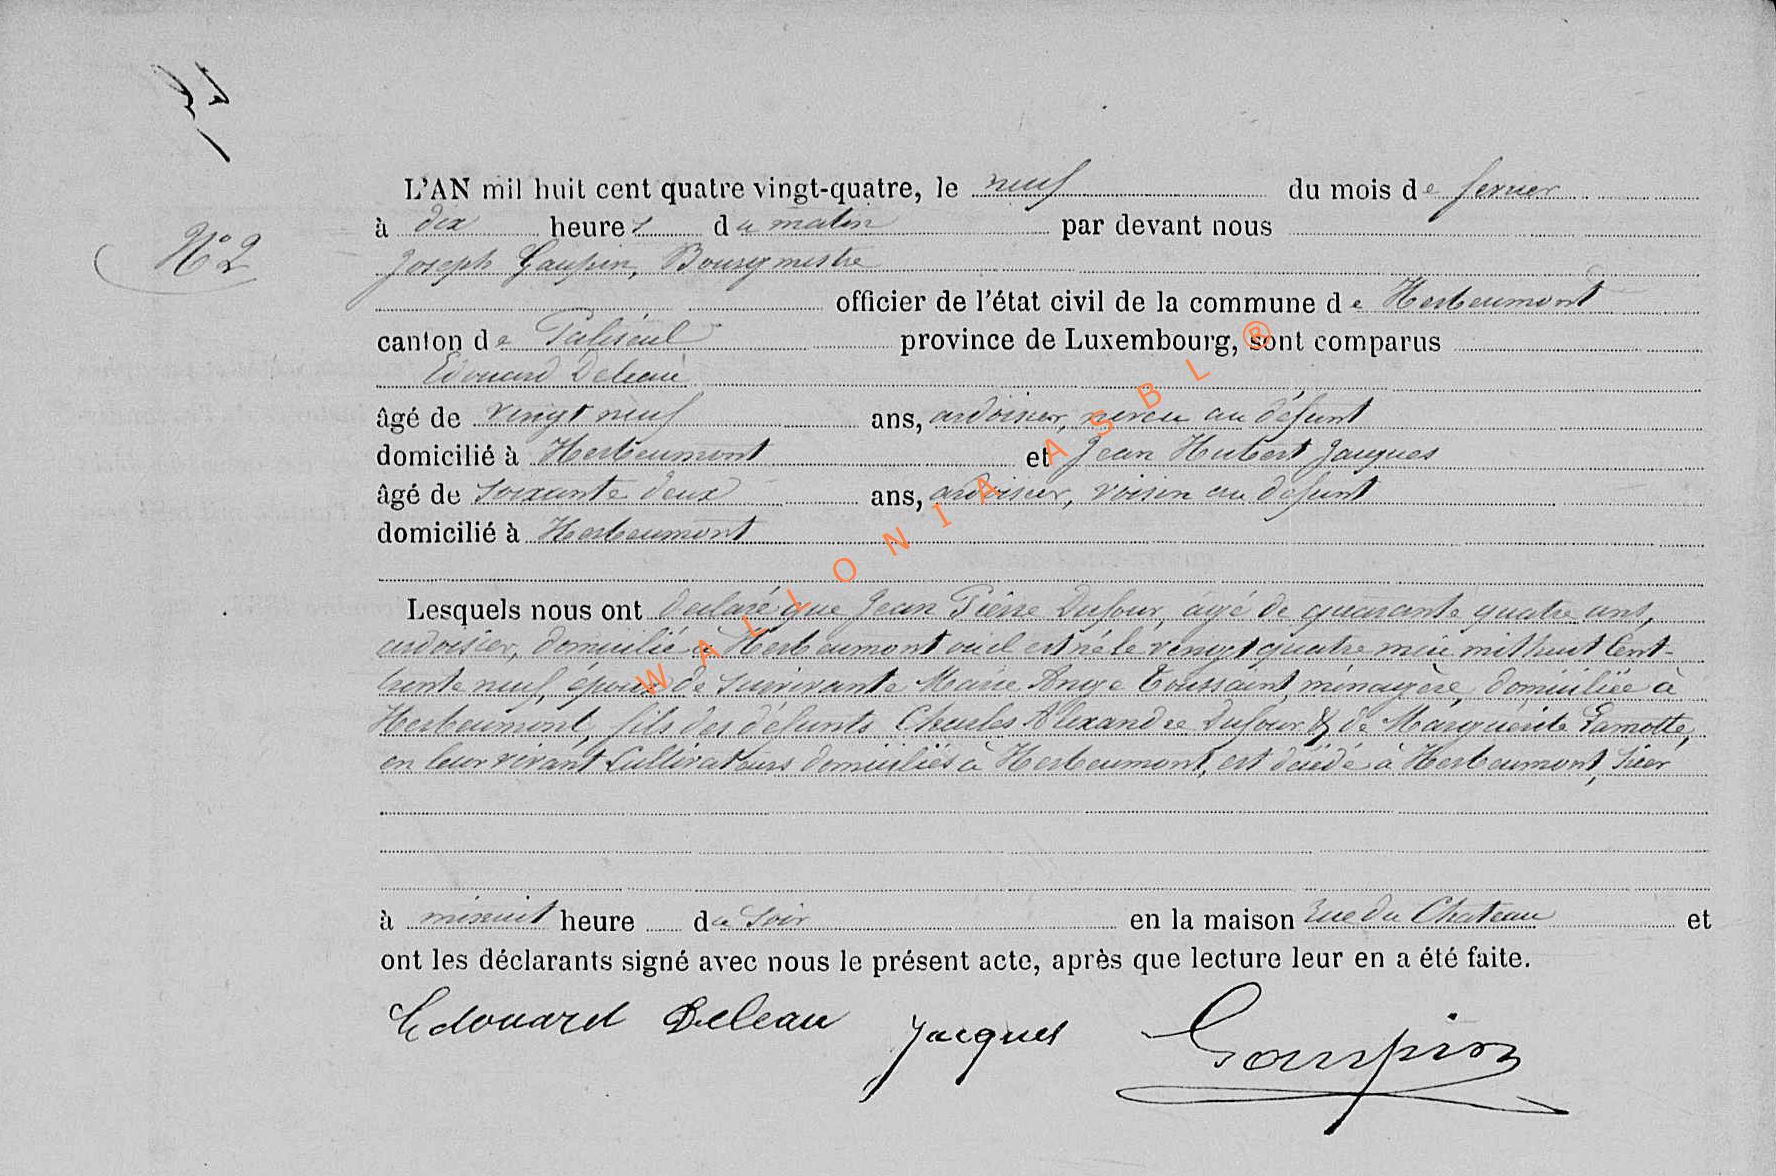 N° 2
L'AN mil huit cent quatre vingt-quatre, le neuf du mois de fevrier
à dix heures du matin par devant nous
Joseph Gaupin, Bourgmestre
officier de l'état civil de la commune de Herbeumont
canton de Paliseul province de Luxembourg, sont comparus
Edouard Deleau
âgé de vingt neuf ans, ardoisier, neveu au défunt
domicilié à Herbeumont et Jean Hubert Jacques
âgé de soixante deux ans, ardoisier, voisin au défunt
domicilié à Herbeumont
Lesquels nous ont déclaré que Jean Pierre Dufour, âgé de quarante quatre ans,
ardoisier, domicilié à Herbeumont où il est né le vingt quatre mai mil huit Cent-
trente neuf, époux de survivante Marie Ange Toussaint, ménagère, domiciliée à
Herbeumont, fils des défunts Charles Alexandre Dufour & de Marguerite Lamotte,
en leur vivant Cultivateurs domiciliés à Herbeumont, est décédé à Herbeumont, hier
à minuit heure du soir en la maison rue du Chateau et
ont les déclarants signé avec nous le présent acte, après que lecture leur en a été faite.
Edouard Deleau Jacques Gaupin
WALLONIA ASBL ®